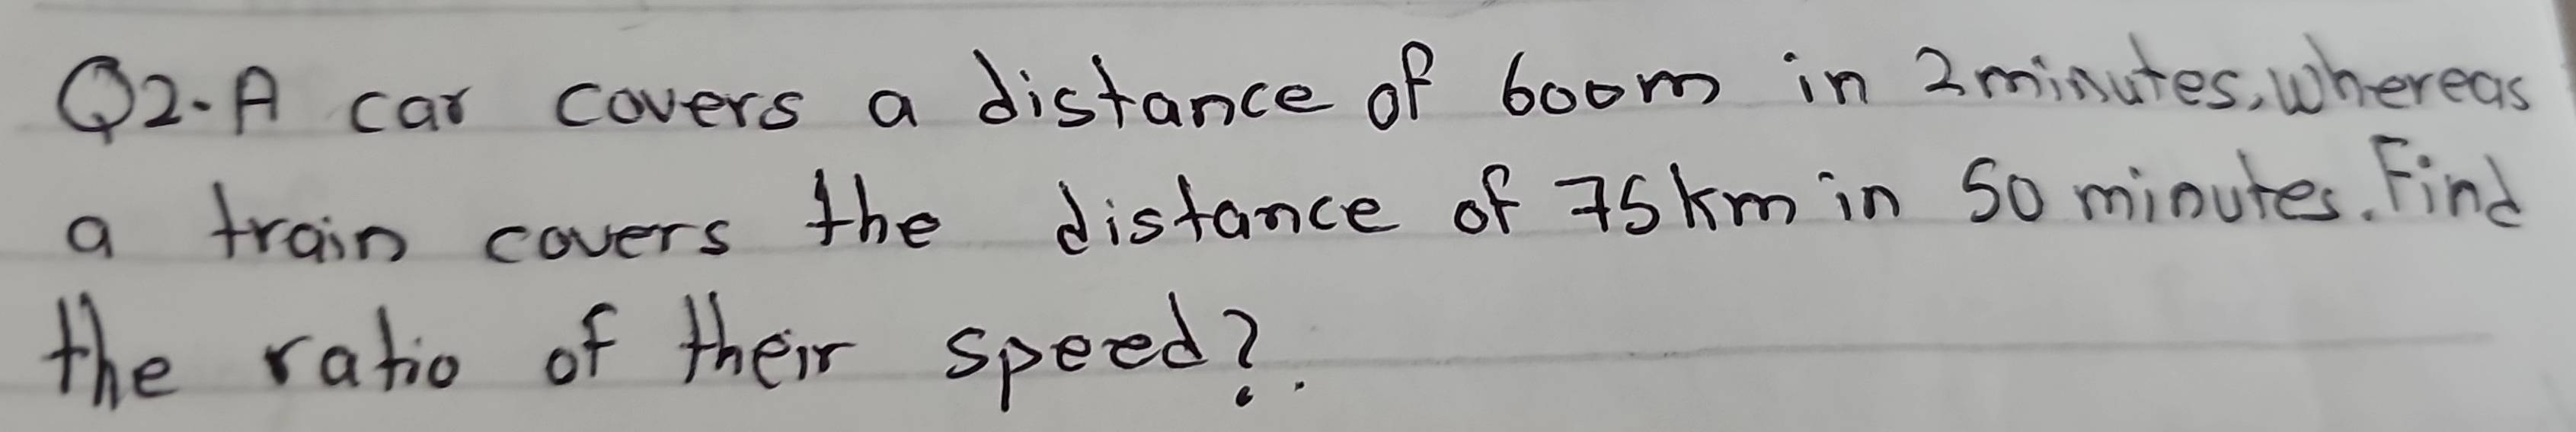 Q2. A car covers a distance of 600m in 2minutes, whereas
a train covers the distance of 75km in 50 minutes. Find
the ratio of their speed?.